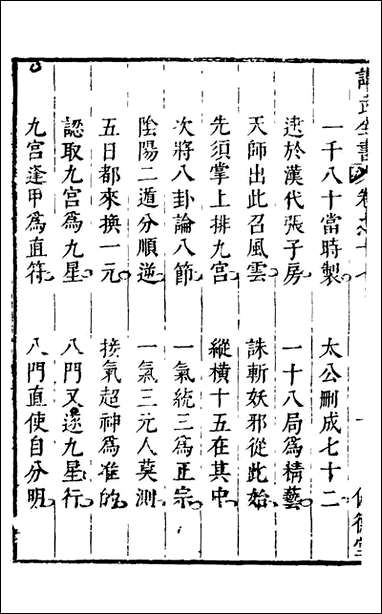 武全書 卷之十七 一
一千八十當時製 太公刪成七十二
逮於漢代張子房 一十八局爲精藝
天師出此召風雲 誅斬妖邪從此始
先須掌上排九宮 縱橫十五在其中
次將八卦論八節 一氣統三爲正宗
陰陽二道分順逆 一氣三元人莫測
五日都來換一元 接氣超神爲准的
認取九宮爲九星 八門又逐九星行
九宮逢甲爲直符 八門直使自分明